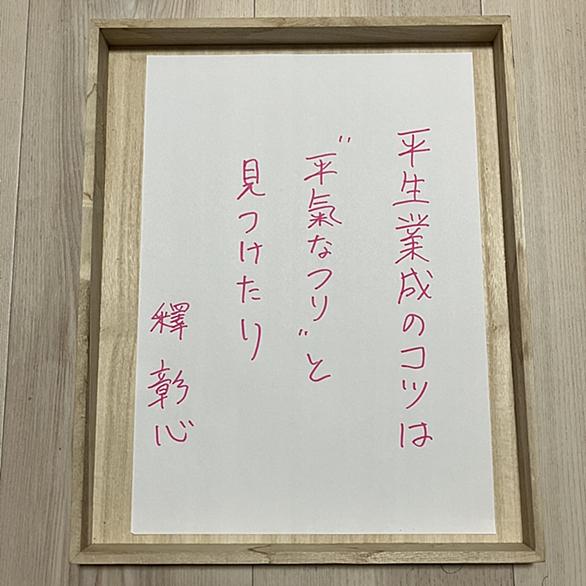 平生業成のコツは
〝平氣なフリ〟と
見つけたり
釋 彰心